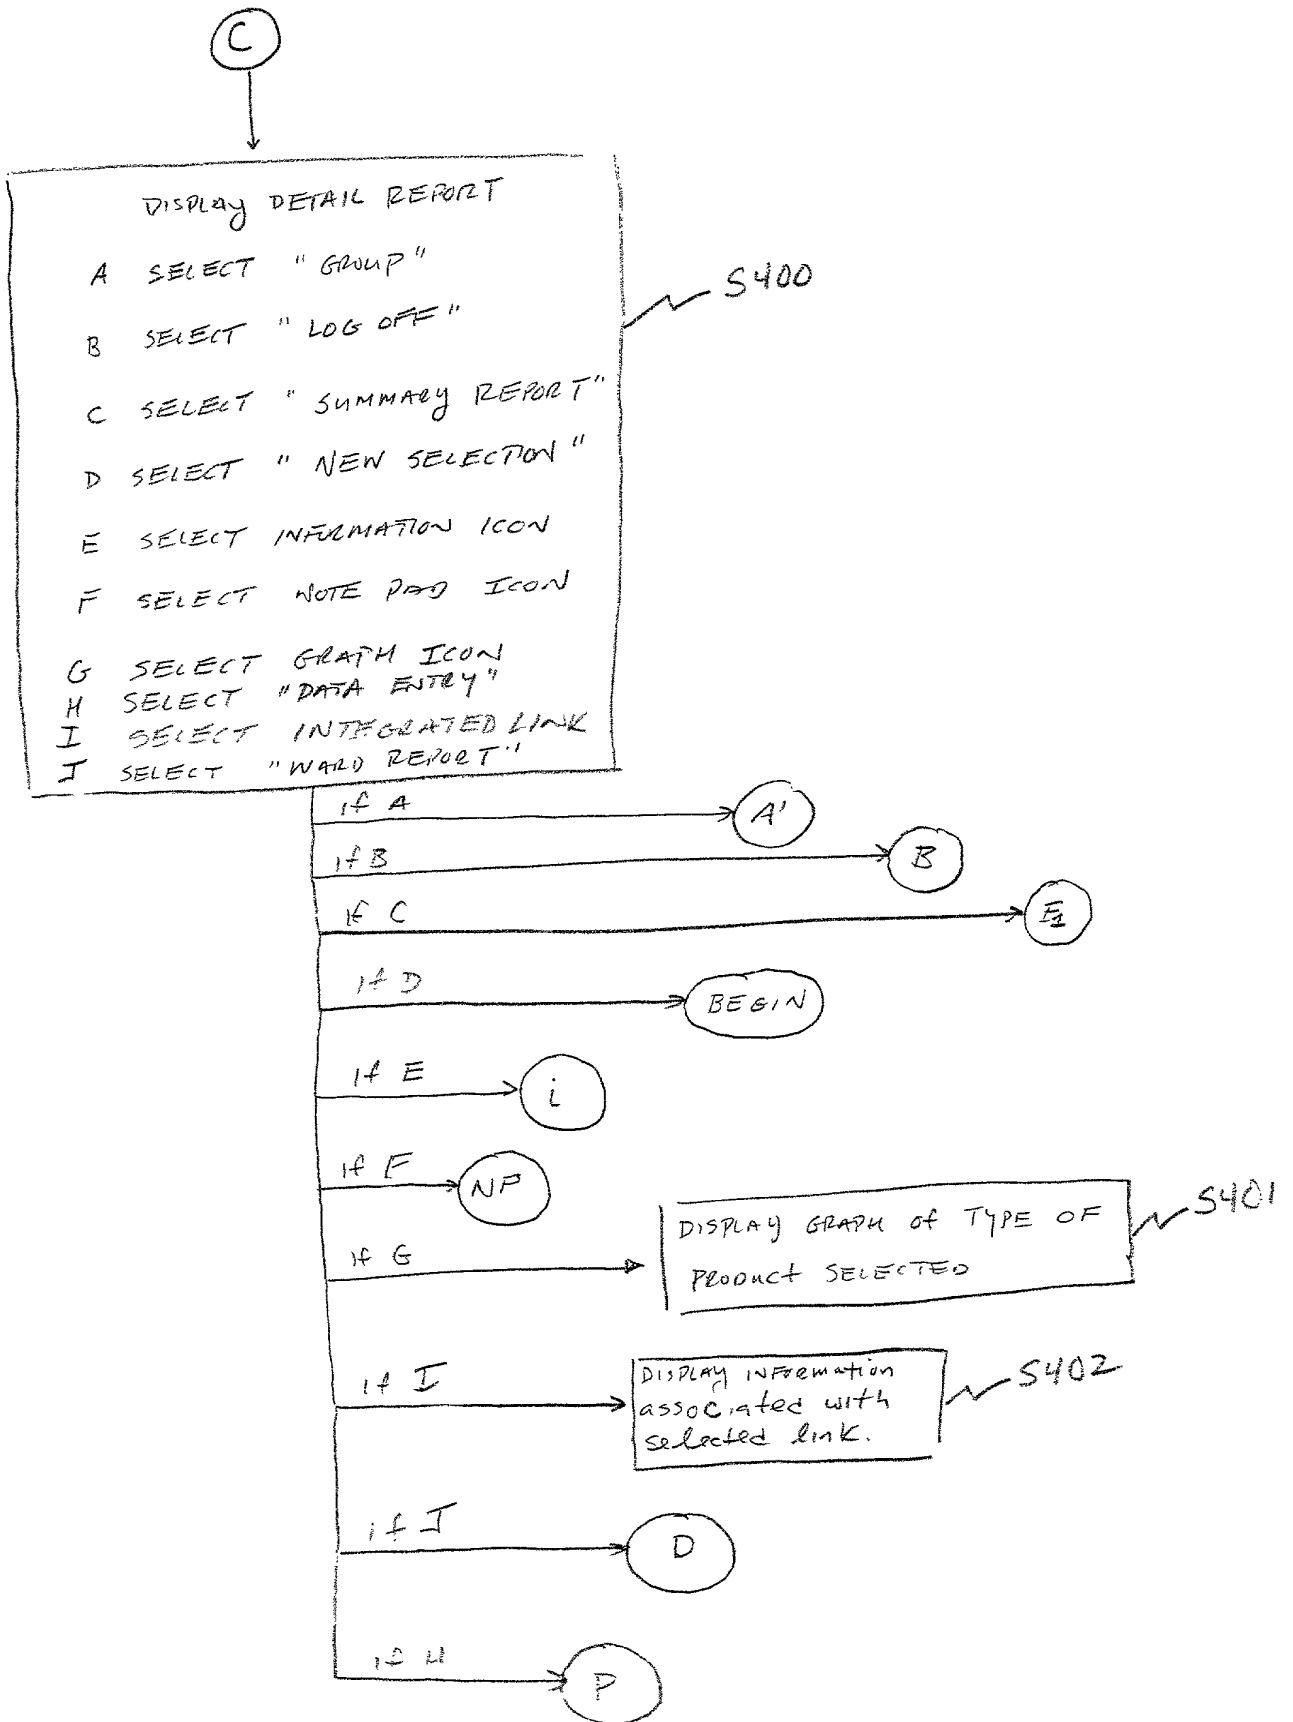 C
DISPLAY DETAIL REPORT
A SELECT "GROUP"
S400
B SELECT "LOG OFF"
C SELECT "SUMMARY REPORT"
D SELECT "NEW SELECTION"
E SELECT INFORMATION ICON
F SELECT NOTE PAD ICON
G SELECT GRAPH ICON
H SELECT "DATA ENTRY"
I SELECT INTEGRATED LINK
J SELECT "WARD REPORT"
if A
A'
if B
B
if C
E1
if D
BEGIN
if E
i
if F
NP
if G
DISPLAY GRAPH of TYPE OF
PRODUCT SELECTED
S401
if I
DISPLAY INFORMATION
associated with
selected link.
S402
if J
D
if H
P